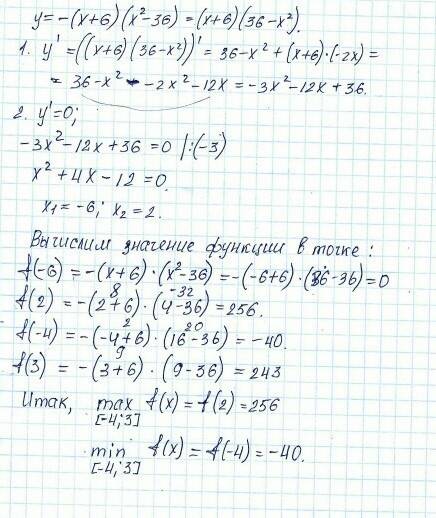 y=-(x+6)(x²-36)=(x+6)(36-x²).
1. y'=((x+6)(36-x²))'=36-x²+(x+6)·(-2x)=
=36-x²-2x²-12x=-3x²-12x+36.
2. y'=0;
-3x²-12x+36=0 |:(-3)
x²+4x-12=0.
x₁=-6; x₂=2.
Вычислим значение функции в точке:
f(-6)=-(x+6)·(x²-36)=-(-6+6)·(36-36)=0
8 -32
f(2)=-(2+6)·(4-36)=256.
2 20
f(-4)=-(-4+6)·(16-36)=-40.
9
f(3)=-(3+6)·(9-36)=243
Итак, max f(x)=f(2)=256
[-4;3]
min f(x)=f(-4)=-40.
[-4;3]